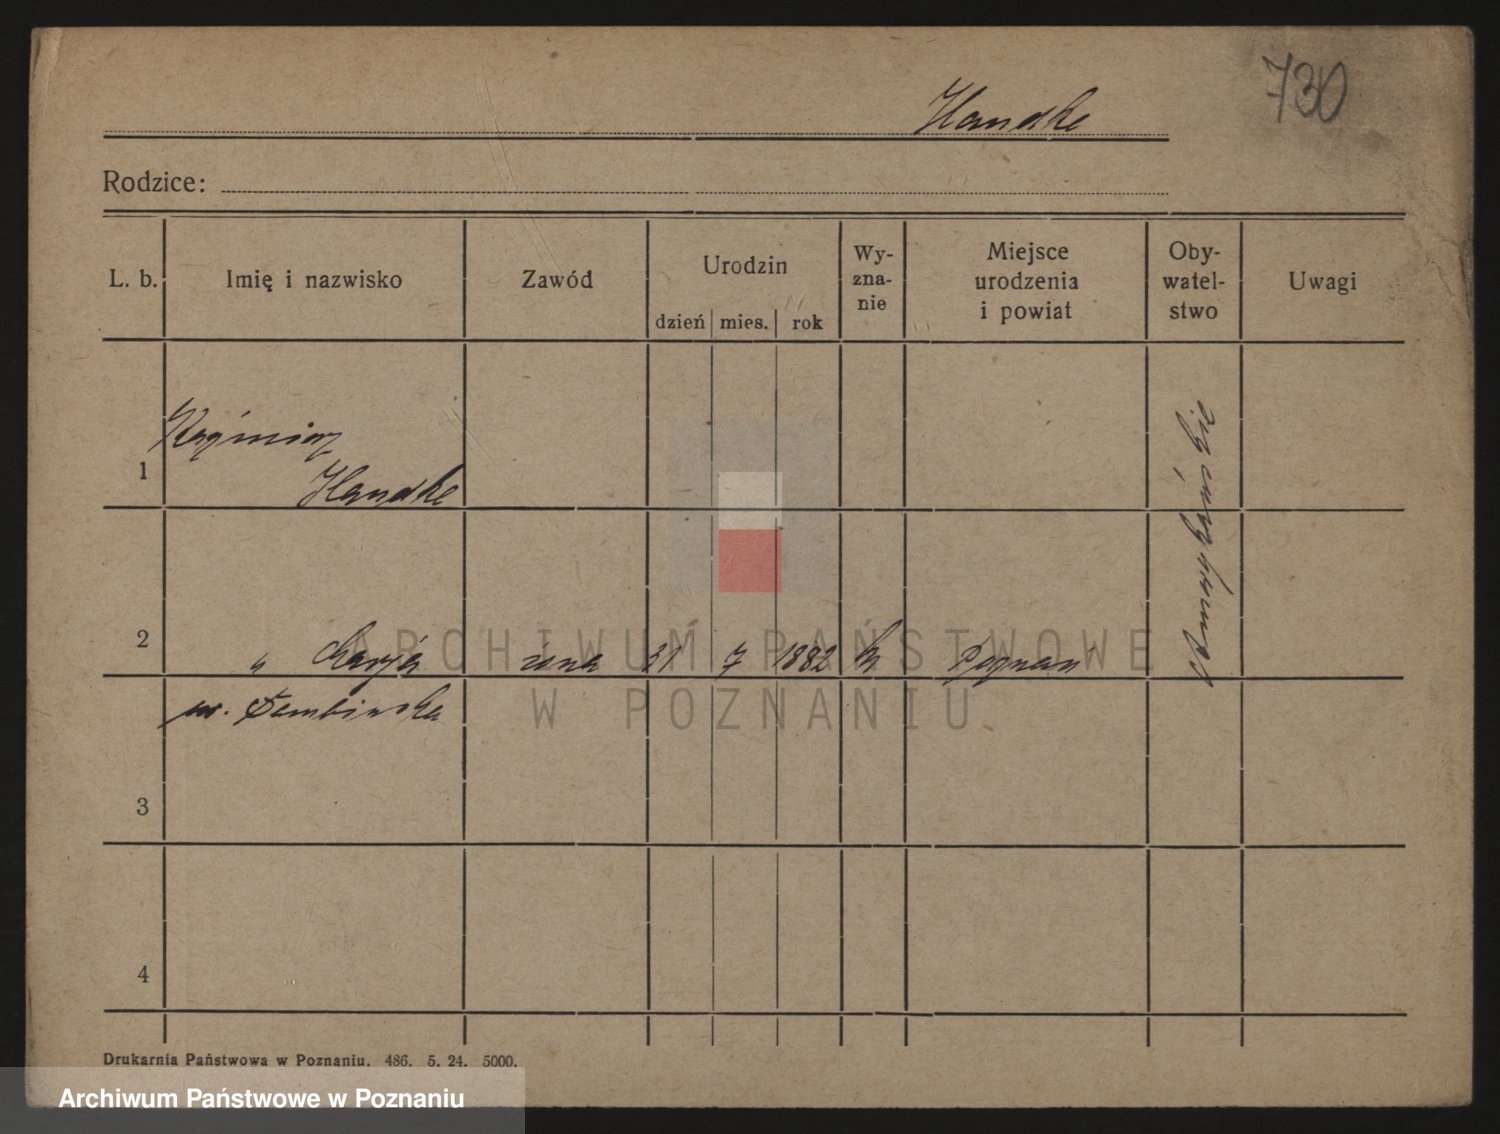 730
Handke
Rodzice:
L. b. Imię i nazwisko Zawód Urodzin dzień mies. rok Wy-zna-nie Miejsce urodzenia i powiat Oby-watel-stwo Uwagi
Kaźmierz
1 Handke
2 " Marja żona 31 7 1882 k Poznań
ur. Dembinska
3
4
ARCHIWUM PAŃSTWOWE
W POZNANIU
Drukarnia Państwowa w Poznaniu. 486. 5. 24. 5000.
Archiwum Państwowe w Poznaniu